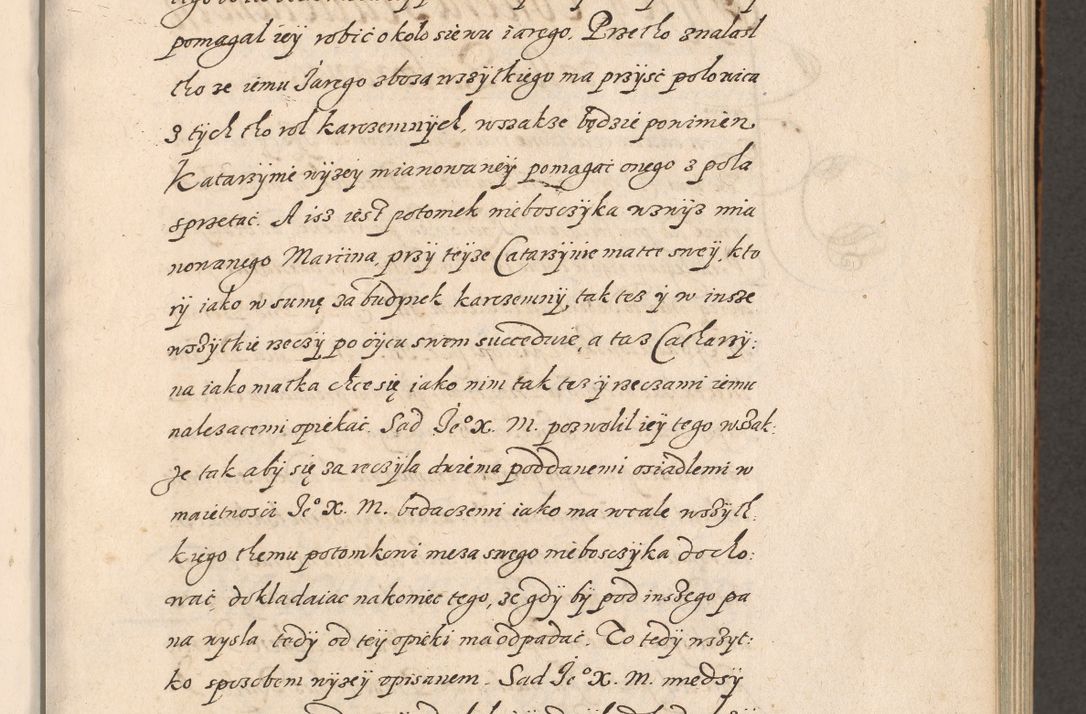 pomagal iey robic około siewu iarego. Przetho znalasl
tho ze iemu Jarego zboza wszytkiego ma przyść polowica
z tych tho rol karczemnych, wszakze będzie powinien
Katarzynie wyzey mianowaney pomagać onego z pola
sprzetać. A isz iest potomek nieboszczyka wzwyz mia
nowanego Marcina, przy teyze Catarzynie matce swey, kto
ry iako w sumę za budynek karczemny, tak tez y w insze
wszytkie rzeczy po oycu swem succeduie, a taz Catharzy:
na iako matka chce się iako nim tak tez y rzeczami iemu
nalezacemi opiekać. Sad Jeº X. M. pozwolil iey tego wszak:
ze tak aby się zareczyla dwiema poddanemi osiadlemi w
maietnosci Jeº X. M. bedaczemi iako ma wcale wszyth:
kiego themu potomkowi meza swego nieboszczyka docho:
wać, dokladaiac nakoniec tego, ze gdy by pod inszego pa
na wysla, tedy od tey opieki ma odpadać. To tedy wszyt:
ko sposobem wyzey opisanem. Sad Jeº X. M. miedzy